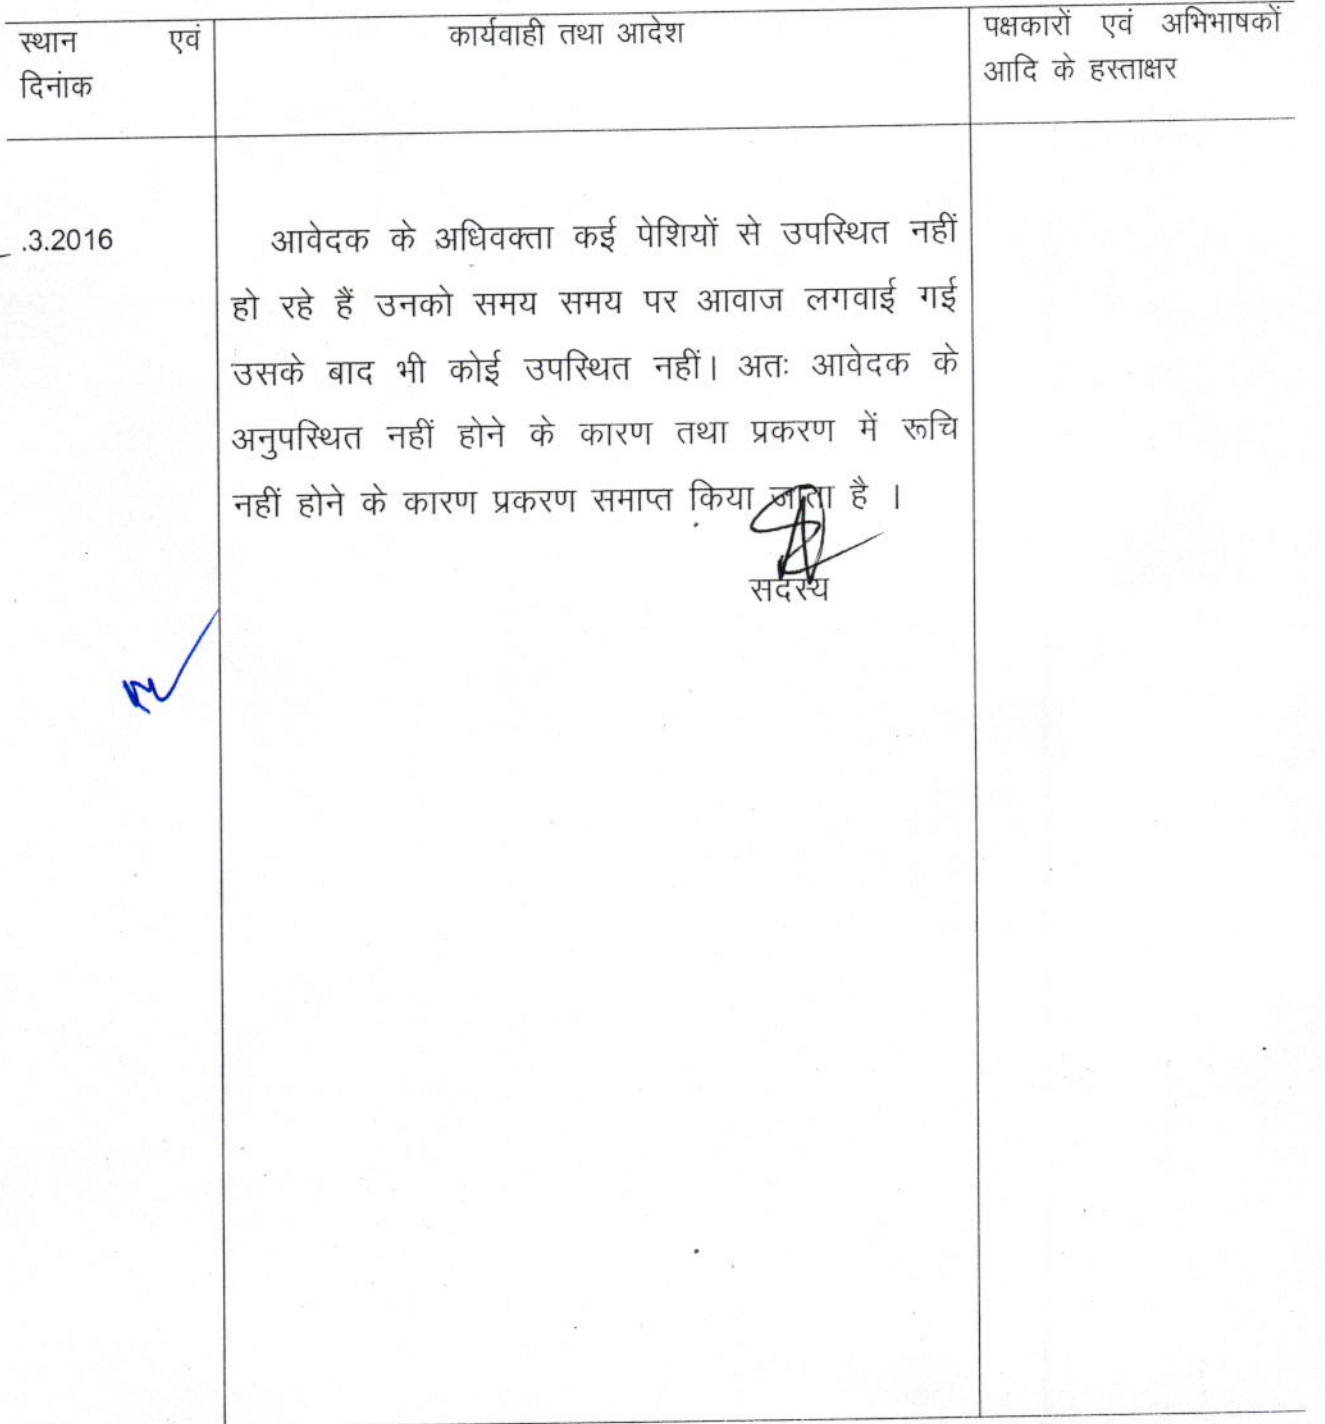 स्थान एवं
दिनांक
कार्यवाही तथा आदेश
पक्षकारों एवं अभिभाषकों
आदि के हस्ताक्षर
.3.2016
आवेदक के अधिवक्ता कई पेशियों से उपस्थित नहीं
हो रहे हैं उनको समय समय पर आवाज लगवाई गई
उसके बाद भी कोई उपस्थित नहीं। अतः आवेदक के
अनुपस्थित नहीं होने के कारण तथा प्रकरण में रूचि
नहीं होने के कारण प्रकरण समाप्त किया जाता है ।
सदस्य